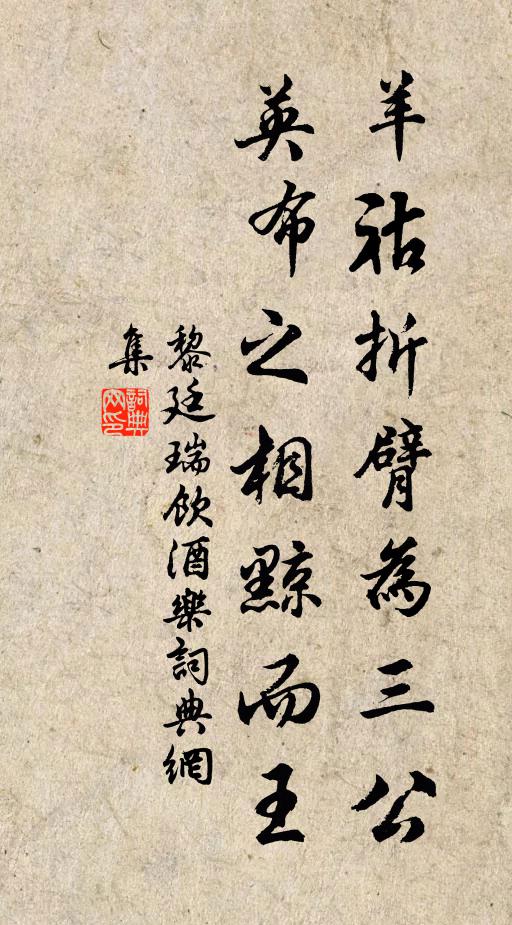 羊祜折臂為三公
英布之相黥而王
黎廷瑞飲酒樂詞典網
集
詞典網印